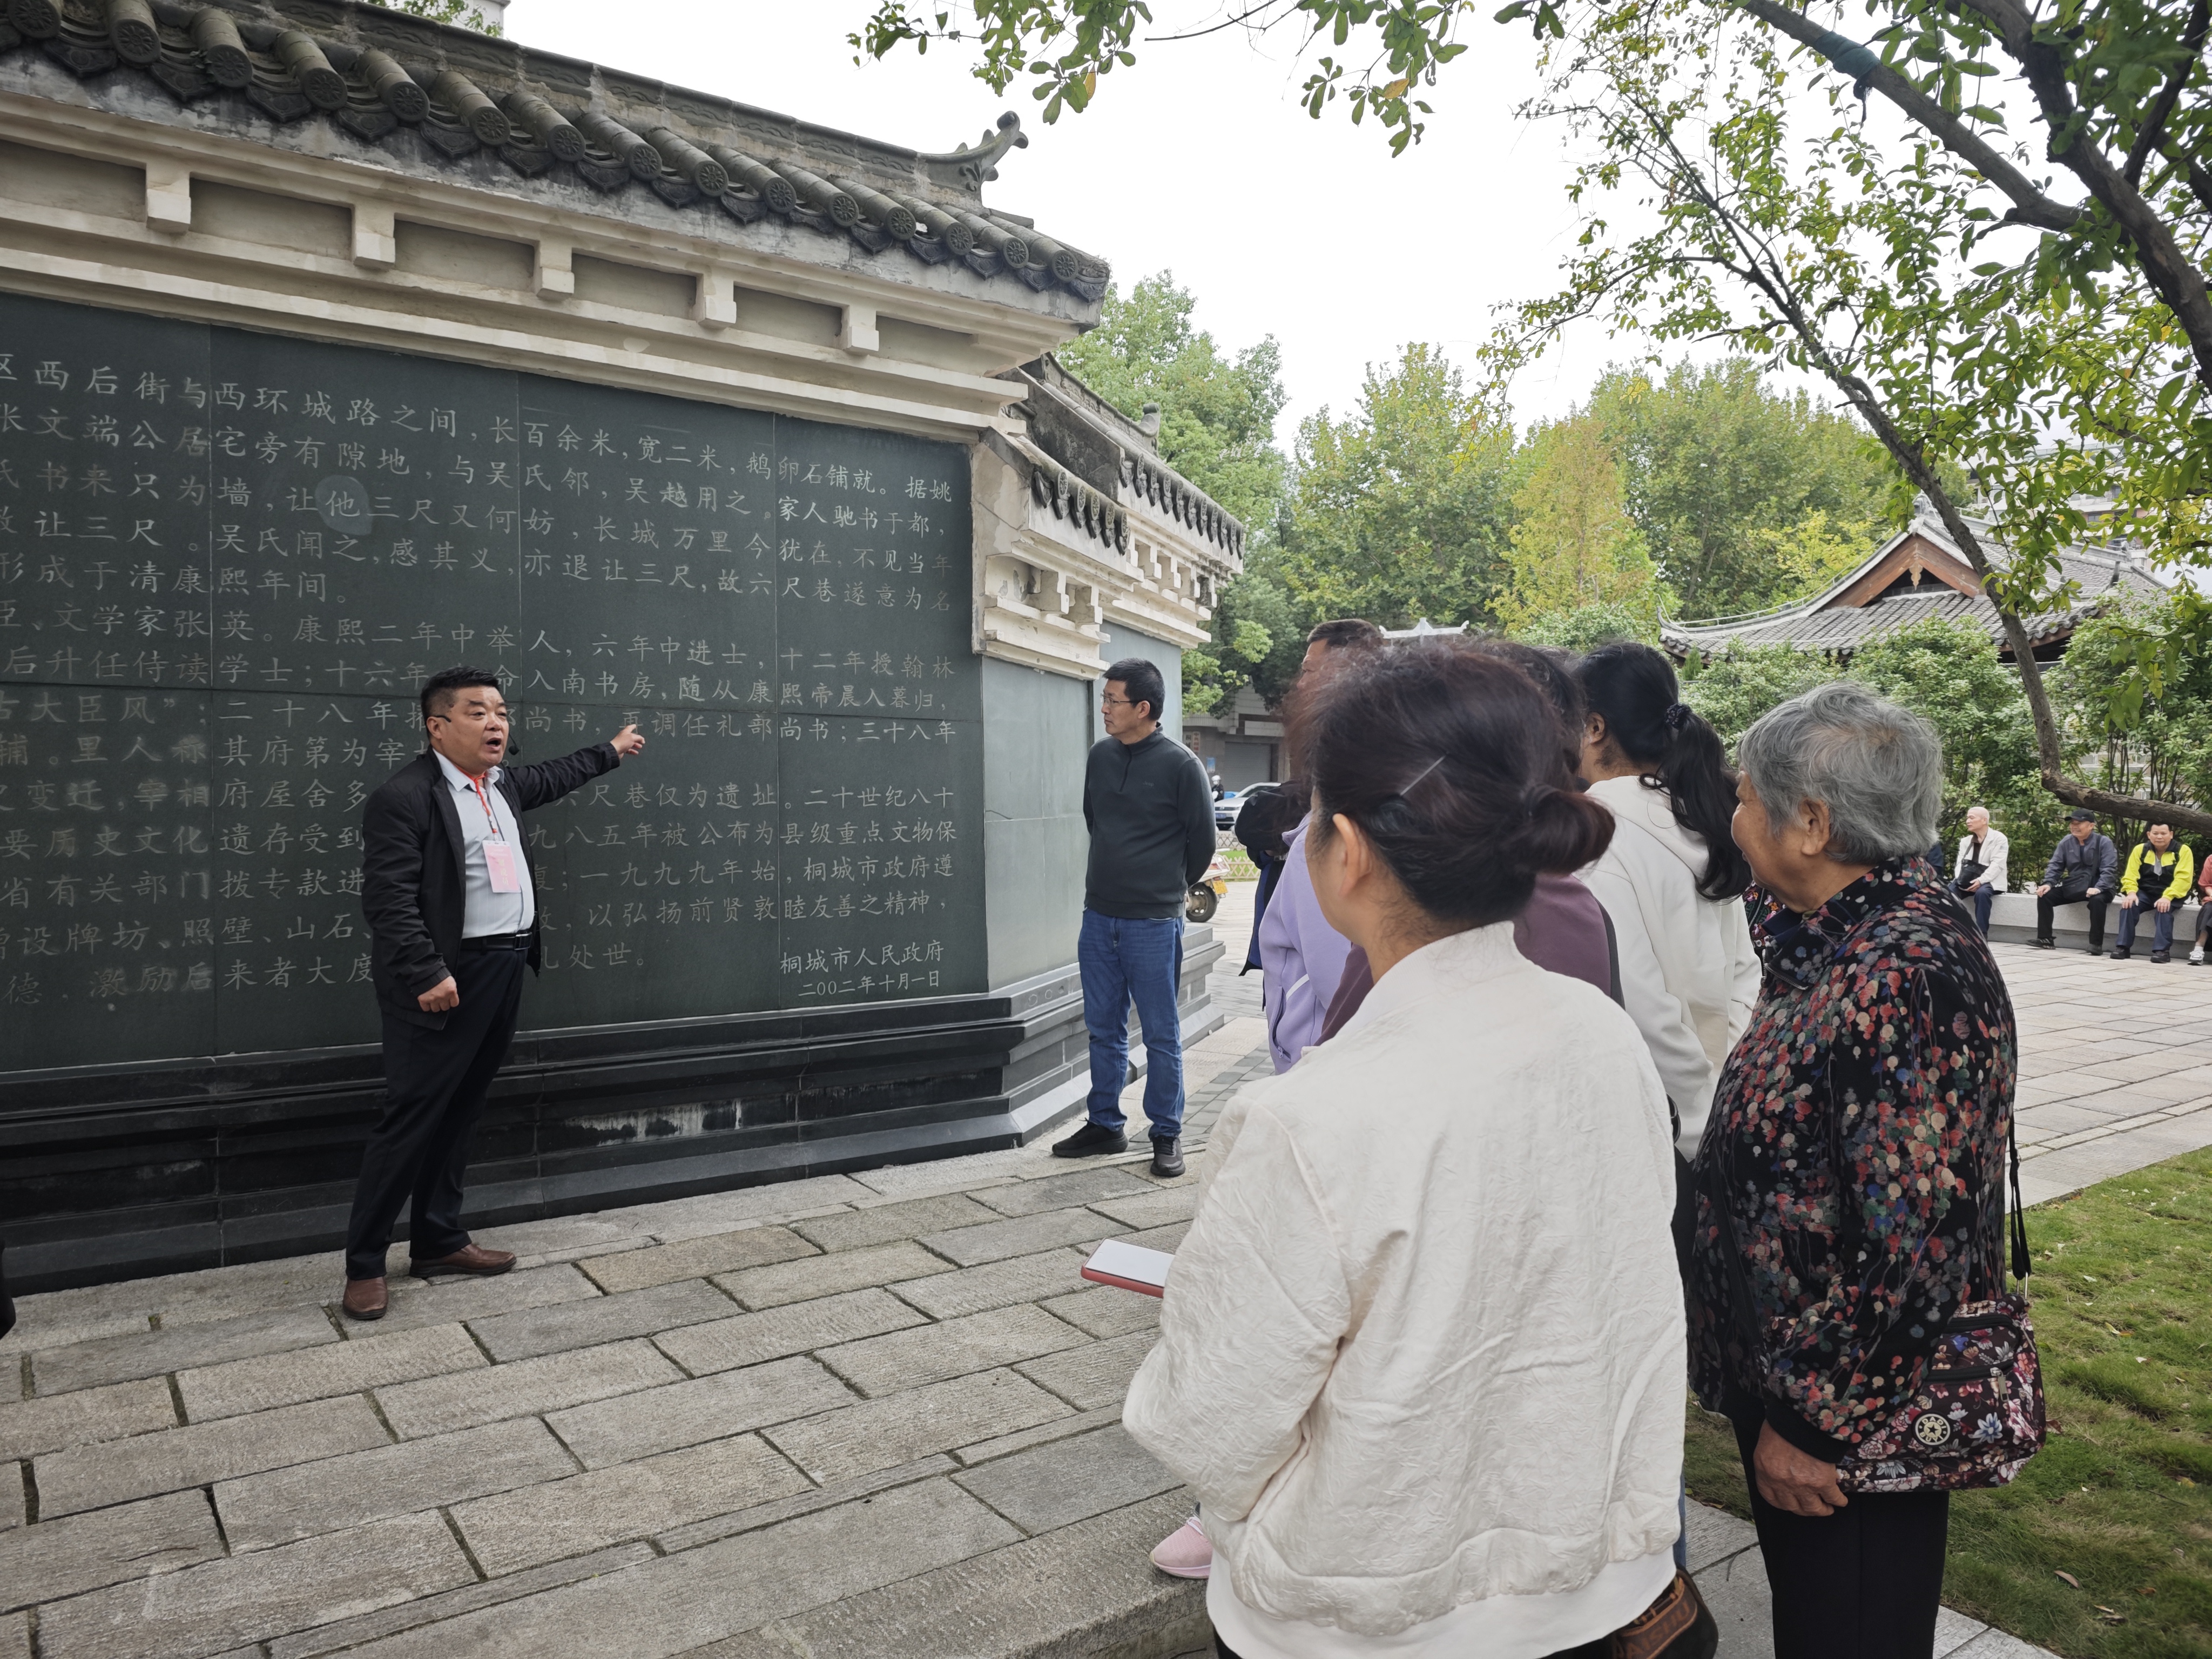 区西后街与西环城路之间，长百余米，宽二米，鹅卵石铺就。据姚
张文端公居宅旁有隙地，与吴氏邻，吴越用之。家人驰书于都，
氏书来只为墙，让他三尺又何妨，长城万里今犹在，不见当年
让三尺。吴氏闻之，感其义，亦退让三尺，故六尺巷遂意为名
形成于清康熙年间。
臣、文学家张英。康熙二年中举人，六年中进士，十二年授翰林
后升任侍读学士；十六年 命入南书房，随从康熙帝晨入暮归，
古大臣风”；二十八年 尚书，再调任礼部尚书；三十八年
辅。里人称其府第为宰
变迁，宰相府屋舍多 尺巷仅为遗址。二十世纪八十
要历史文化遗存受到 九八五年被公布为县级重点文物保
省有关部门拨专款进 ；一九九九年始，桐城市政府遵
增设牌坊、照壁、山石 ，以弘扬前贤敦睦友善之精神，
德，激励后来者大度 礼处世。
桐城市人民政府
二00二年十月一日